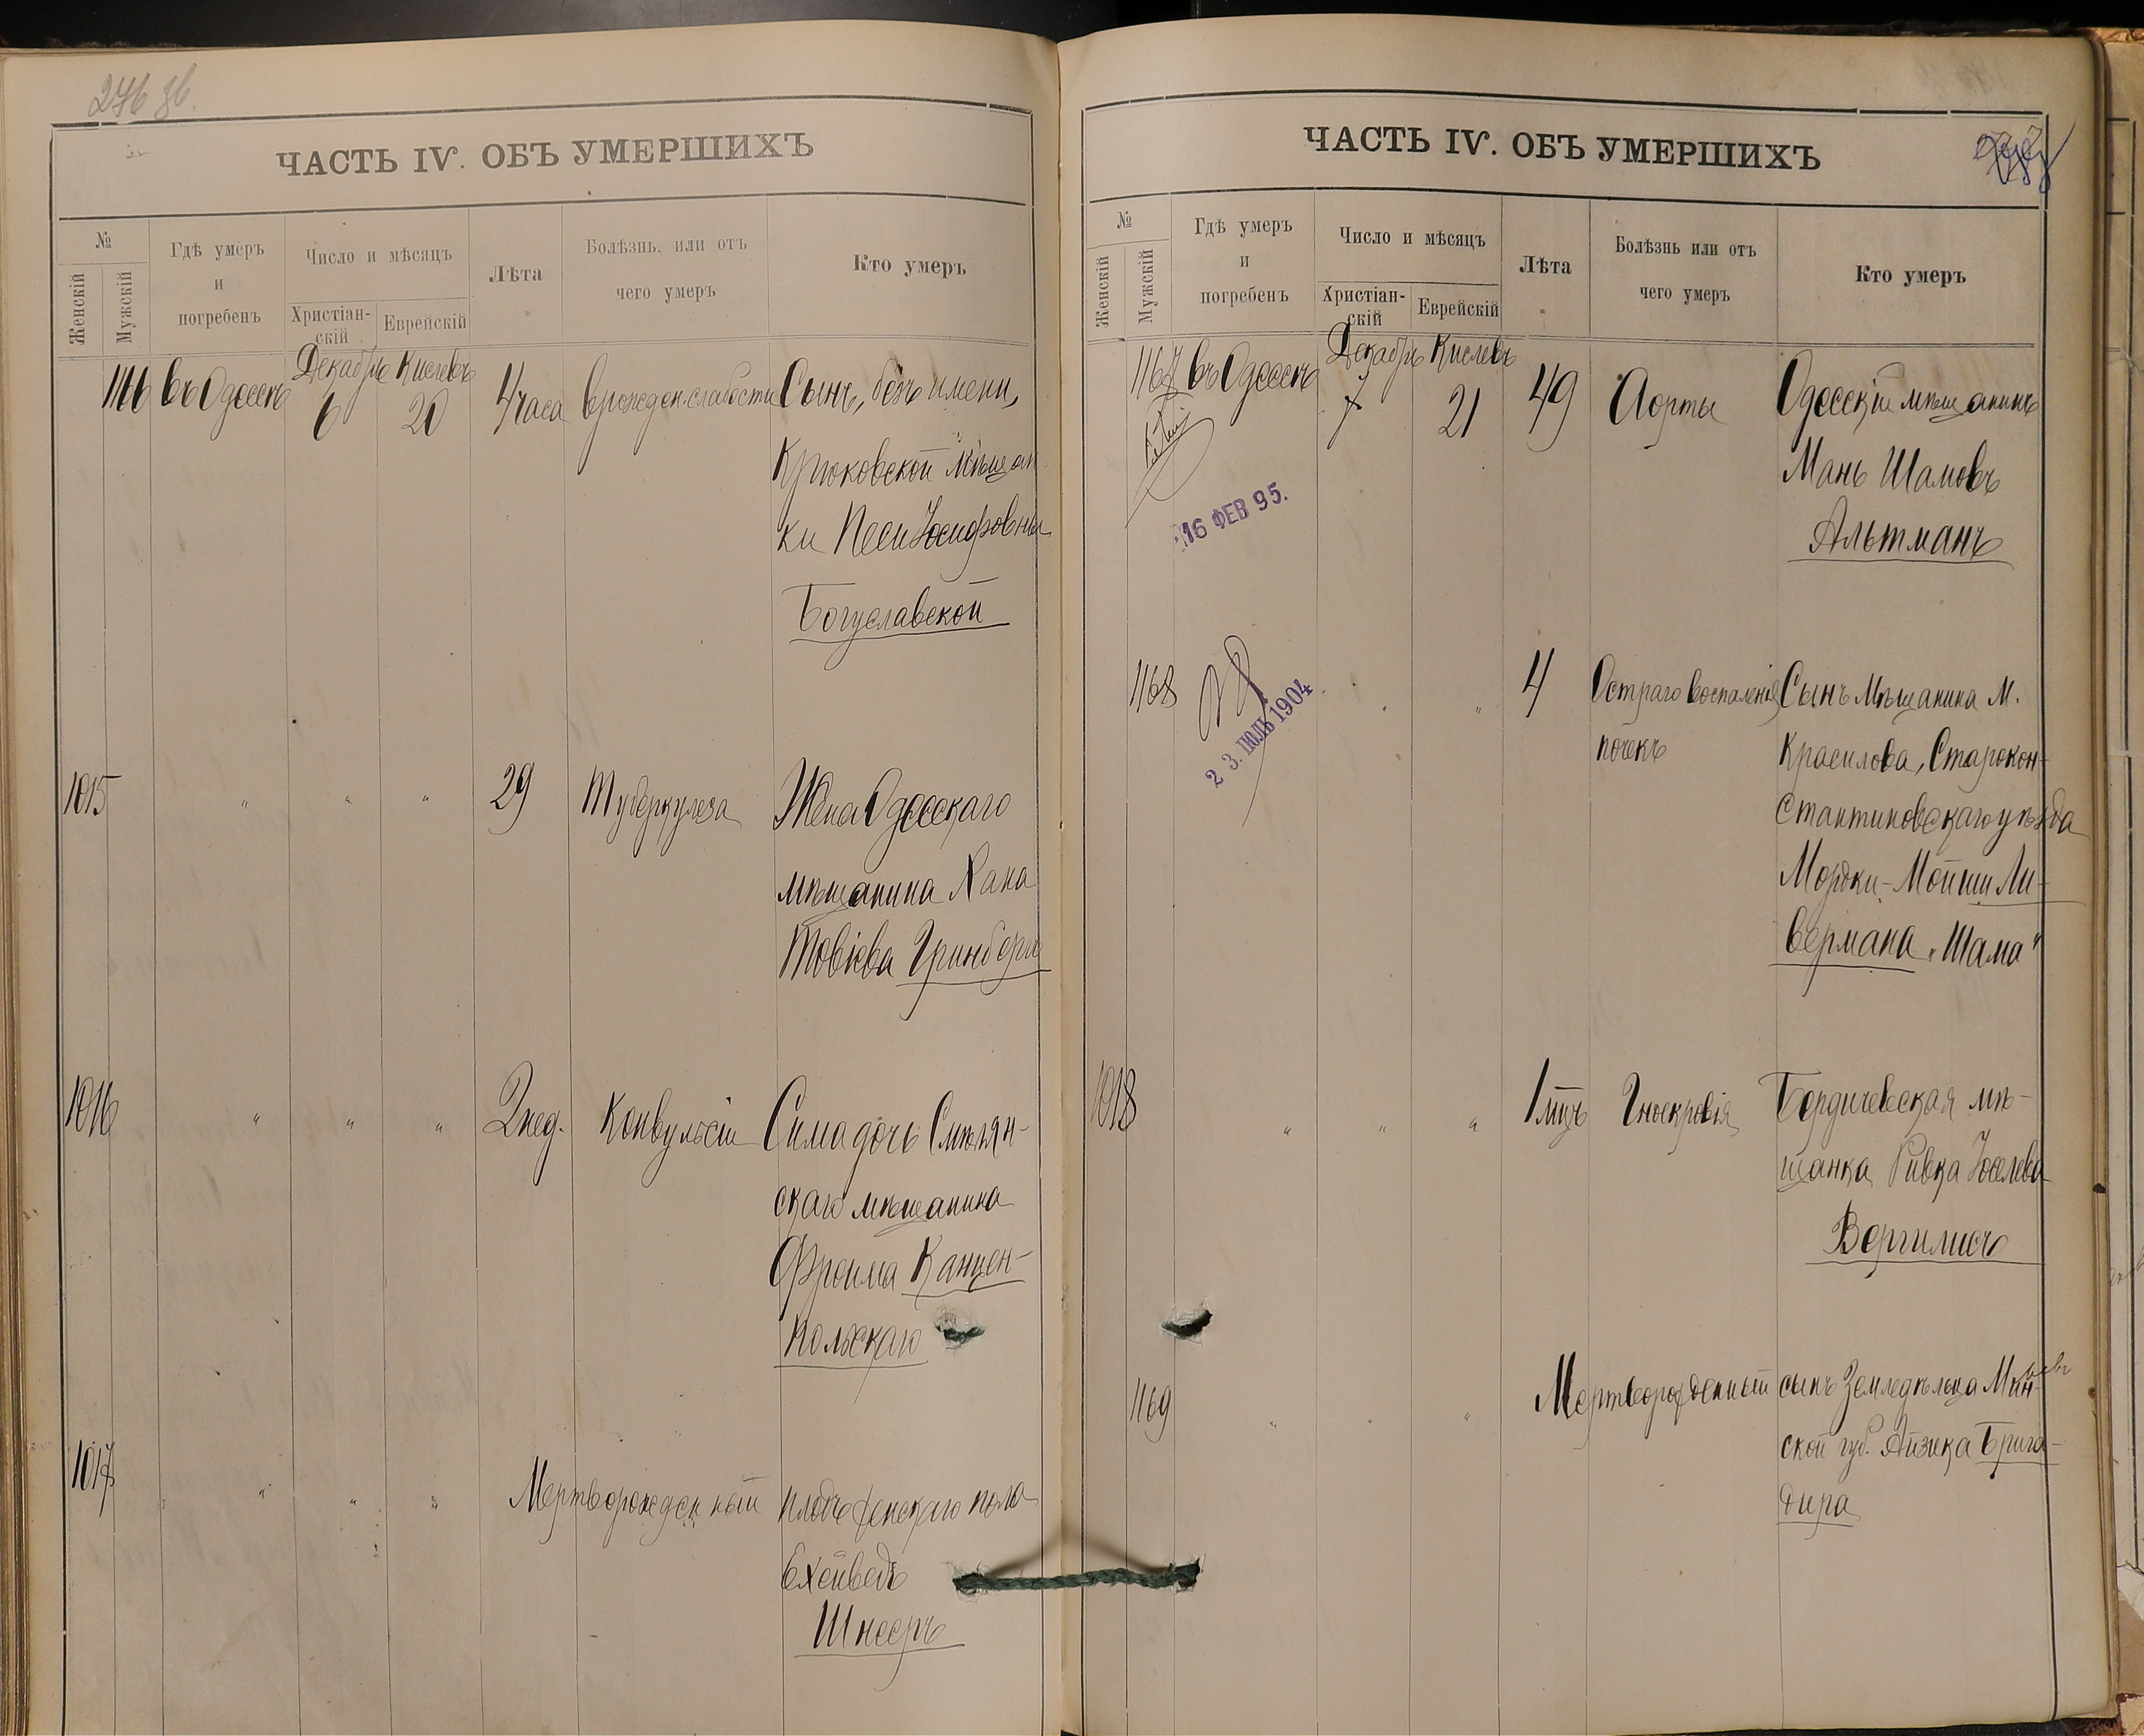 276 об.
ЧАСТЬ IV. ОБЪ УМЕРШИХЪ
№
Женскій
Мужскій
Гдѣ умеръ
и
погребенъ
Число и мѣсяцъ
Христіан-
скій
Еврейскій
Лѣта
Болѣзнь, или отъ
чего умеръ
Кто умеръ
Декабрь Кислевъ
1166 въ Одессѣ 6 20 4 часа врожден. слабости Сынъ, безъ имени,
Крюковской мѣщан
ки Песи Іосифовны
Богуславской
1015 " " " 29 Туберкулеза Жена Одесскаго
мѣщанина Хана
Товіева Гринбергъ
1016 " " " 2 нед. Конвульсіи Сима дочь Смѣлян-
скаго мѣщанина
Фроима Канцен-
польскаго
1017 " " " Мертворожденный плодъ женскаго пола
Ехевведъ
Шнееръ
ЧАСТЬ IV. ОБЪ УМЕРШИХЪ
№
Женскій
Мужскій
Гдѣ умеръ
и
погребенъ
Число и мѣсяцъ
Христіан-
скій
Еврейскій
Лѣта
Болѣзнь или отъ
чего умеръ
Кто умеръ
Декабрь Кислевъ
1167 въ Одессѣ 7 21 49 Аорты Одесскій мѣщанинъ
Мань Шамовъ
Альтманъ
16 ФЕВ 95.
1168 " " 4 Остраго воспаленія Сынъ мѣщанина м.
почекъ Красилова, Старокон-
стантиновскаго уѣзда
Мордки-Мойши Ли-
вермана „Шама"
23. ІЮЛЬ 1904
1018 " " " 1 мцъ Гноекровія Бердичевская мѣ-
щанка Ривка Іоселева
Вергилисъ
1169 " " " Мертворожденный сынъ Земледѣльца Мин-
ской губ. Айзика Брига-
дира